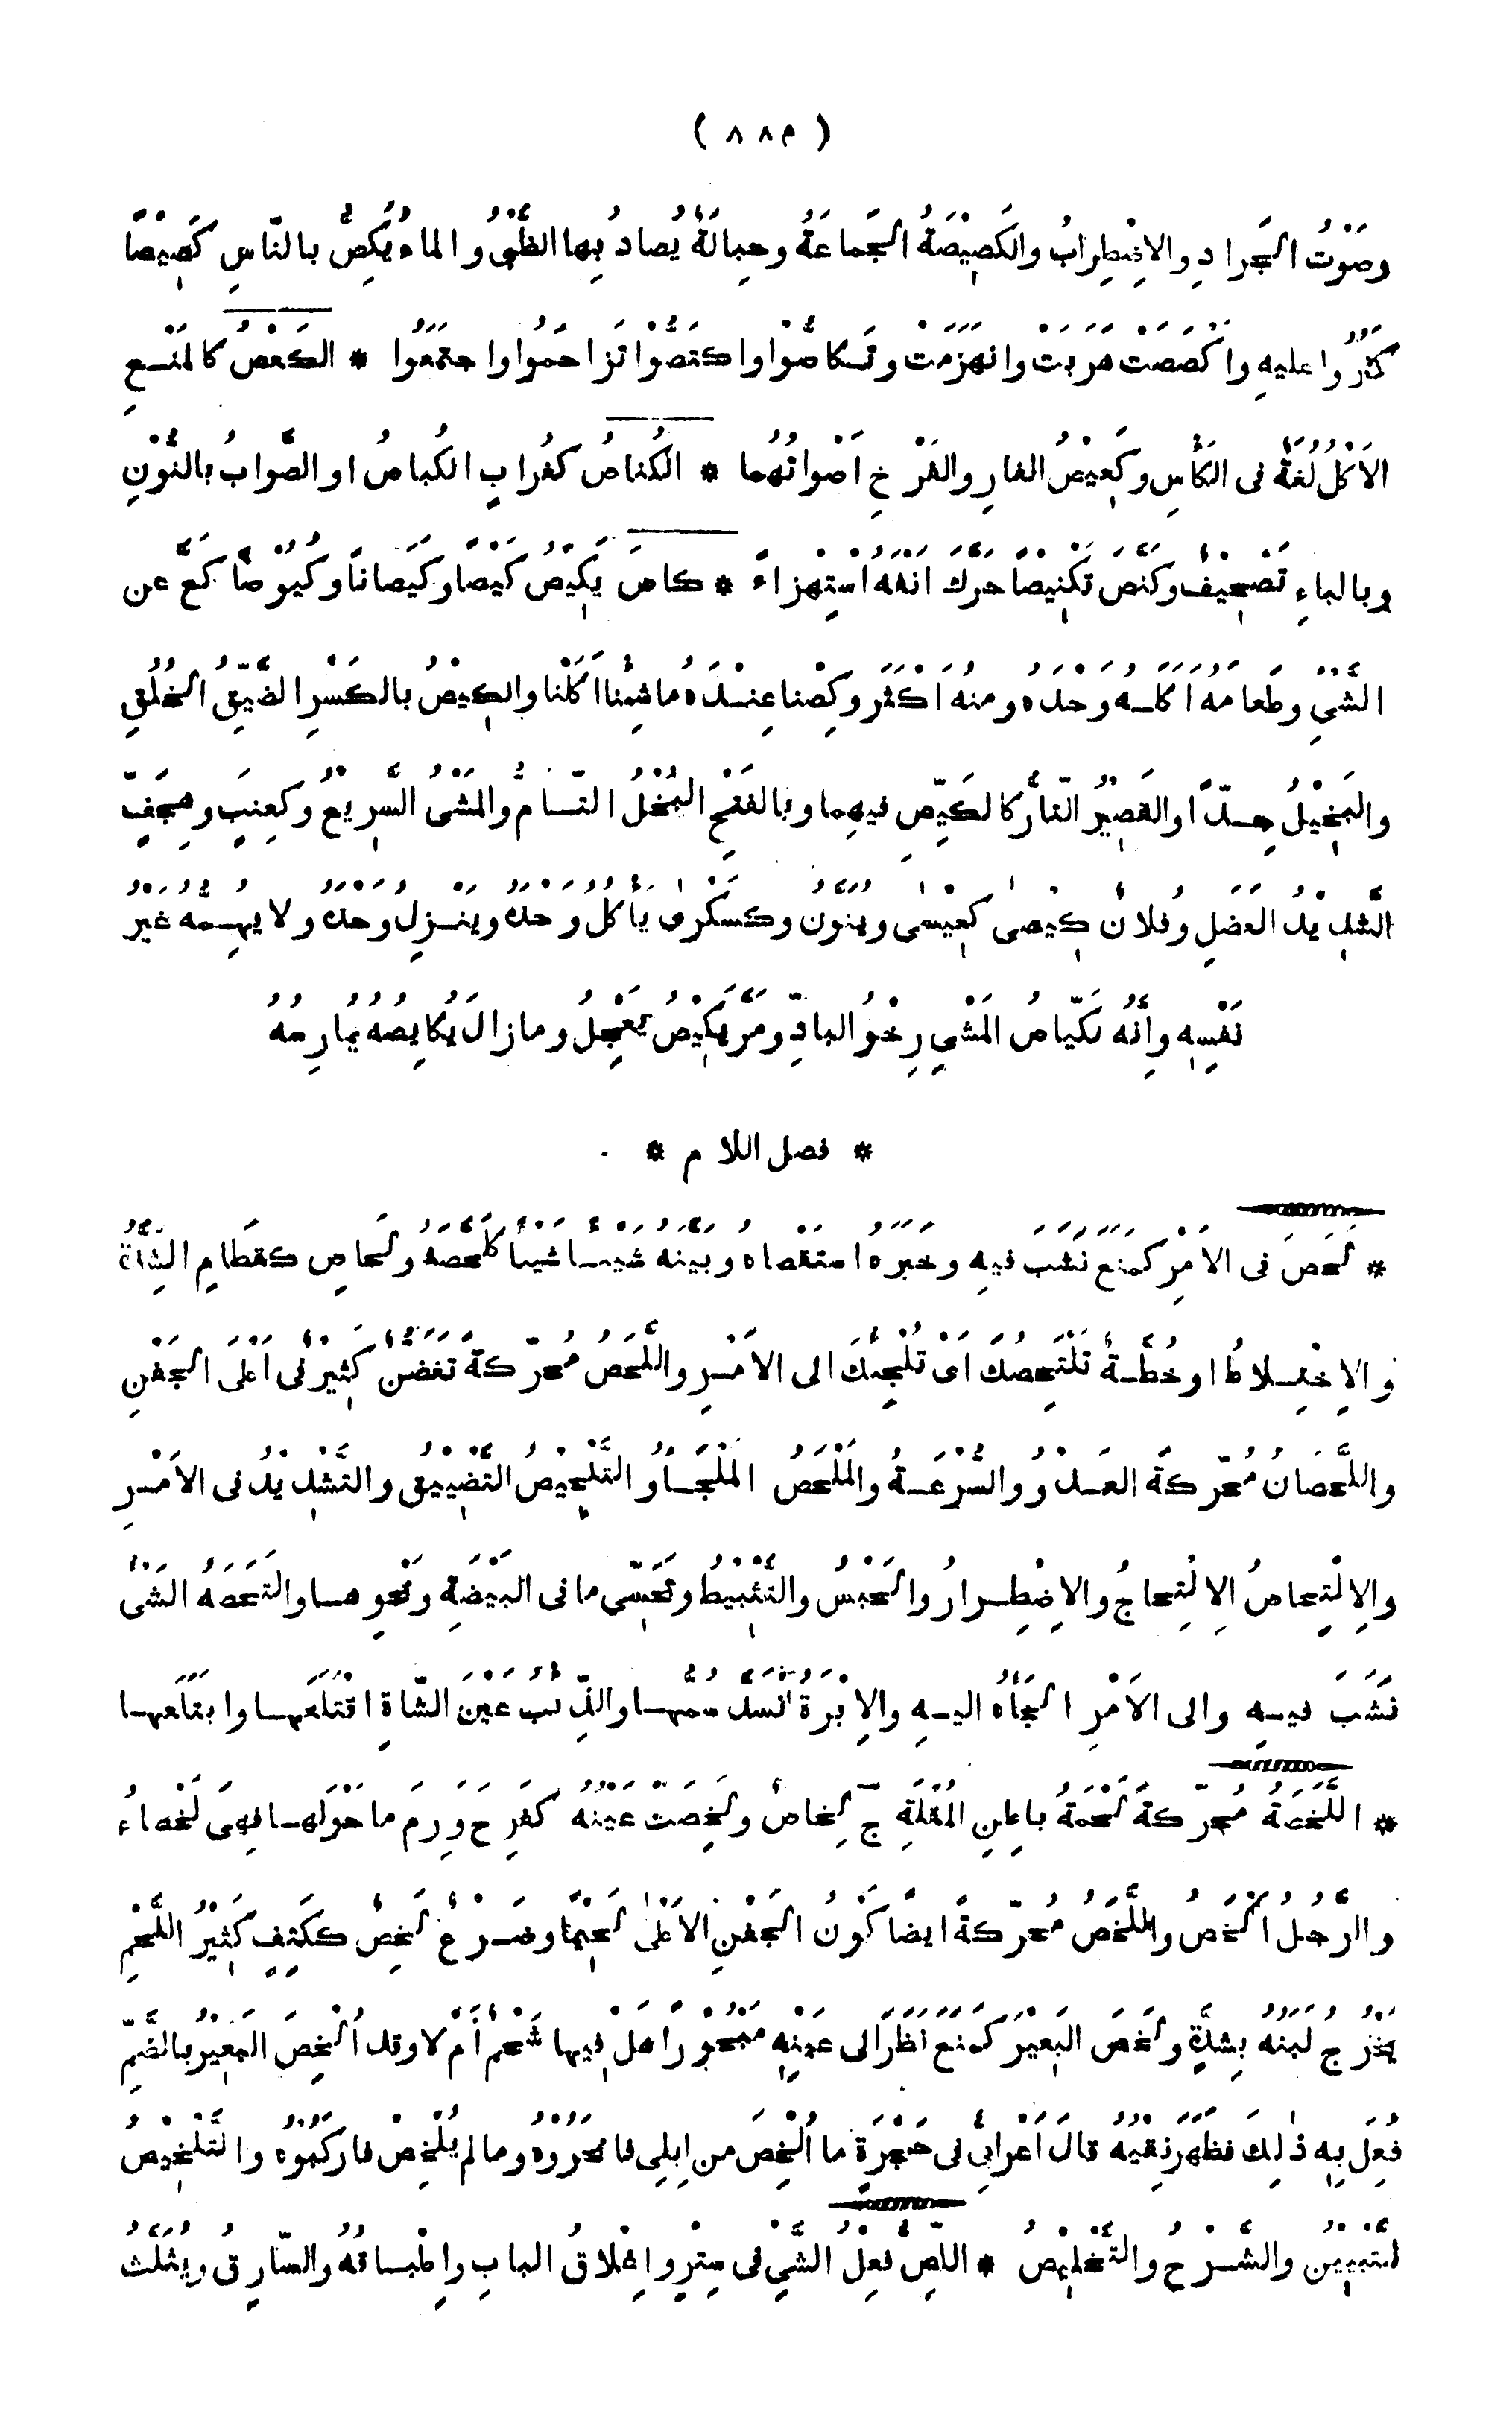 ( ٨٨٩ )
وصَوْتُ الجَرادِ والاِضْطِرابُ والكَصِيْصَةُ الجَماعَةُ وحِبالَةٌ يُصادُ بِها الظَّبْىُ والماءُ يَكِصُّ بالنّاسِ كَصِيْصًا
كَثُرُوا عليهِ واَكْصَصْتَ هَرَبْتَ وانهَزَمْتَ وتَكاصُّوْا واكتَصُّوْا تَزاحَمُوا واجتَمَعُوا * الكَعْصُ كالمَنْعِ
الاَكْلُ لُغَةٌ فى الكَأْسِ وكَعِيْصُ الفارِ والفَرْخِ اَصْواتُهُما * الكُناصُ كغُرابٍ الكُباصُ او الصَّوابُ بالنُّوْنِ
وبالباءِ تَصْحِيْفٌ وكَنَّصَ تَكْنِيْصًا حَرَّكَ اَنْفَهُ اسْتِهْزاءً * كاصَ يَكِيْصُ كَيْصًا وكَيَصانًا وكُيُوْصًا كَعَّ عن
الشَّيْءِ وطَعامَهُ اَكَلَهُ وَحْدَهُ ومنهُ اَكْثَرَ وكِصْنا عِنْدَهُ ما شِئْنا اَكَلْنا والكِيْصُ بالكَسْرِ الضَّيِّقُ الخُلُقِ
والبَخِيْلُ جِدًّا والقَصِيْرُ التّارُّ كالكَيِّصِ فيهِما وبالفَتْحِ البُخْلُ التّامُّ والمَشْىُ السَّرِيْعُ وكعِنَبٍ وهِجَفٍّ
الشَّدِيْدُ العَضَلِ وفُلانٌ كِيْصٰى كعِيْسٰى وينَوَّنُ وكسَكْرٰى يأكُلُ وَحْدَهُ ويَنْزِلُ وَحْدَهُ ولا يهِمُّهُ غَيْرُ
نَفْسِهِ واِنَّهُ لكَيّاصُ المَشْىِ رِخْوُ البادِّ ومَرَّ يَكِيْصُ يَعْجِلُ وما زالَ يُكايِصُهُ يُمارِسُهُ
* فصل اللام *
* لَحَصَ فى الاَمْرِ كمَنَعَ نَشَبَ فيهِ وخَبَرَهُ استَقْصاهُ وبَيَّنَهُ شَيْئًا شَيْئًا كلَحَّصَهُ ولَحاصِ كقَطامِ الشِّدَّةُ
والاِخْتِلاطُ او خُطَّةٌ تَلْتَحِصُكَ اَىْ تُلْجِئُكَ الى الاَمْرِ واللَّحَصُ مُحَرّكةً تَغَضُّنٌ كَثِيْرٌ فى اَعْلَى الجَفْنِ
واللَّحَصانُ مُحَرّكةً العَدْوُ والسُّرْعَةُ والمَلْحَصُ المَلْجَأُ والتَّلْحِيْصُ التَّضْيِيْقُ والتَّشْدِيْدُ فى الاَمْرِ
والاِلْتِحاصُ الاِلْتِحاجُ والاِضْطِرارُ والحَبْسُ والتَّثْبِيْطُ وتَحَسِّى ما فى البَيْضَةِ ونَحْوِها والتَحَصَهُ الشَّىْءُ
نَشَبَ فيهِ والى الاَمْرِ الجَأَهُ اليهِ والاِبْرَةُ انْسَدَّ سَمُّها والذِّئْبُ عَيْنَ الشّاةِ اقْتَلَعَها وابتَلَعَها
* اللَّخَصَةُ مُحرّكةً لَحْمَةُ باطِنِ المُقْلَةِ جّ لِخاصٌ ولَخِصَتْ عَيْنُهُ كفَرِحَ وَرِمَ ما حَوْلَها فهىَ لَخْصاءُ
والرَّجُلُ اَلْخَصُ واللَّخَصُ مُحَرّكةً ايضًا كَوْنُ الجَفْنِ الاَعْلٰى لَحِيْمًا وضَرْعٌ لَخِصٌ ككَتِفٍ كَثِيْرُ اللَّحْمِ
يَخْرُجُ لَبَنُهُ بِشِدَّةٍ ولَخَصَ البَعِيْرَ كمَنَعَ نَظَرَ الى عَيْنِهِ مَنْحُوْرًا هَلْ فِيها شَحْمٌ اَمْ لا وقد اُلْخِصَ البَعِيْرُ بالضَّمِّ
فُعِلَ بِهِ ذٰلِكَ فظَهَرَ نِقْيُهُ قالَ اَعْرابىٌّ فى حَجْرَةٍ ما اُلْخِصَ من اِبِلِى فانْحَرُوْهُ وما لم يُلْخَصْ فارْكَبُوْهُ والتَّلْخِيْصُ
التَّبْيِيْنُ والشَّرْحُ والتَّخْلِيْصُ * اللَّصُّ فِعْلُ الشَّيْءِ فى سِتْرٍ واِغْلاقُ البابِ واِطْباقُهُ والسّارِقُ ويُثَلَّثُ